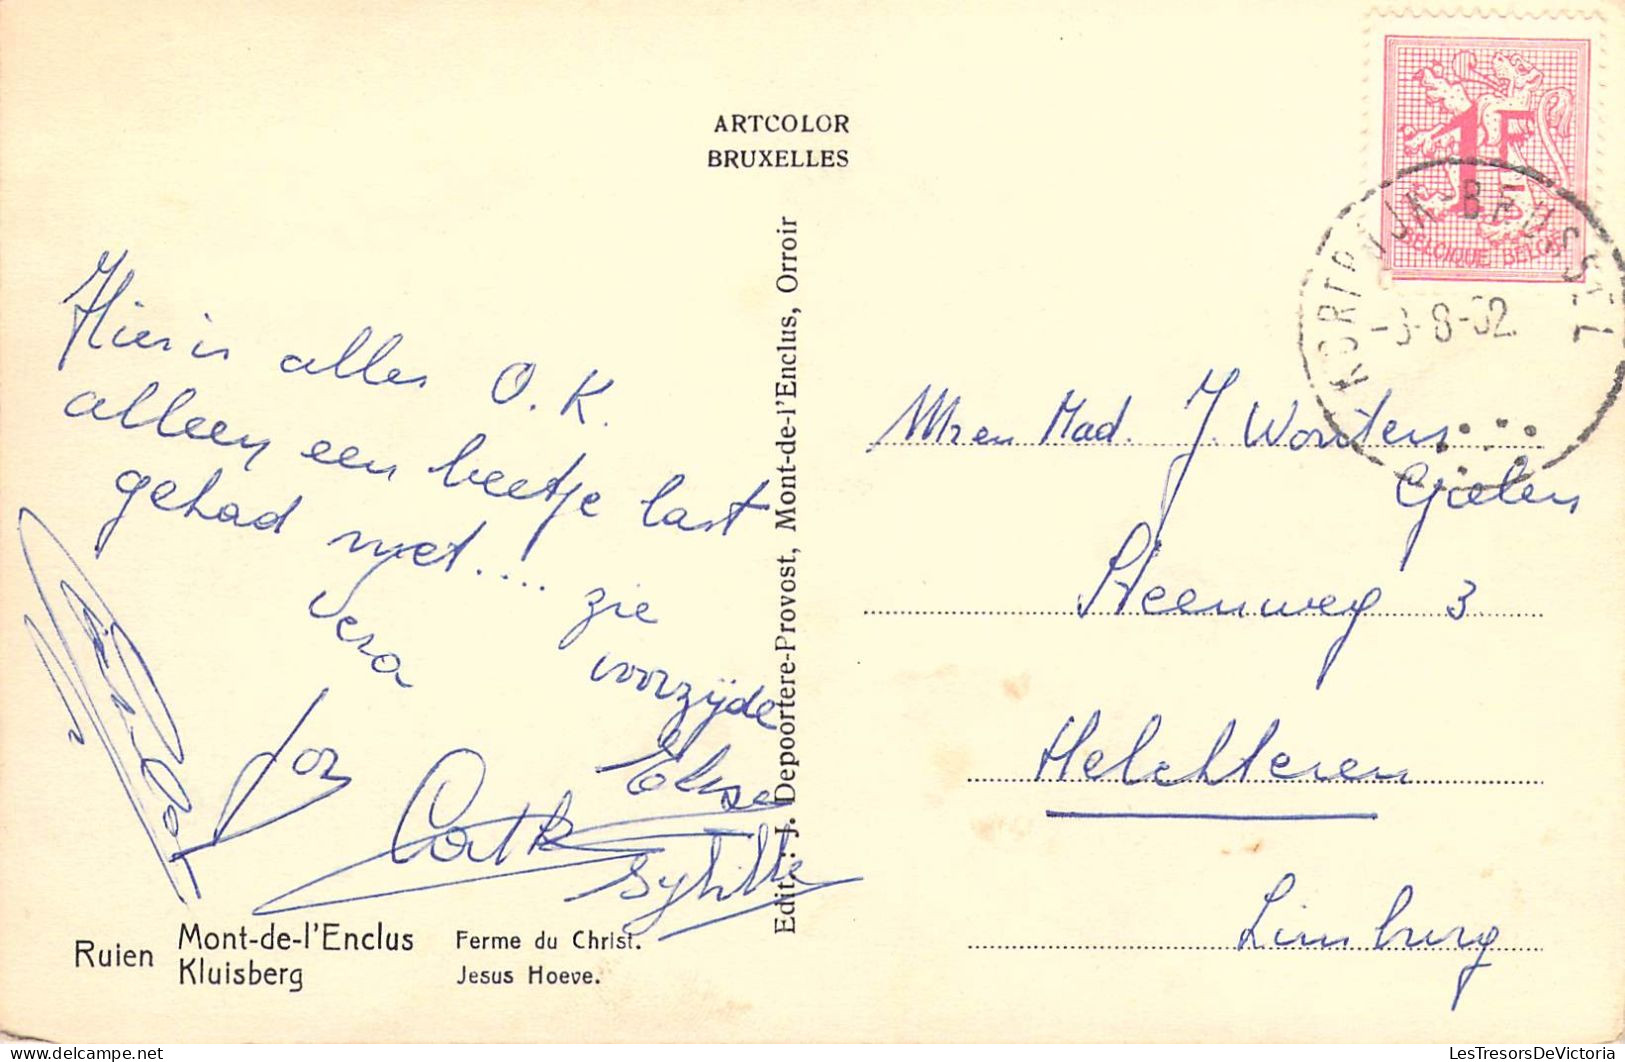 ARTCOLOR
BRUXELLES
Hier is alles O.K.
alleen een beetje last
gehad met.... zie
voorzijde
Vera
Jos
Elise
Cath
Sybille
Ruien
Mont-de-l'Enclus
Kluisberg
Ferme du Christ.
Jesus Hoeve.
Edit.: J. Depoortere-Provost, Mont-de-l'Enclus, Orroir
1F
BELGIQUE BELGIE
KORTRIJK
-8-62
Mr en Mad. J. Wouters
Gielen
Steenweg 3
Helchteren
Limburg
LesTresorsDeVictoria